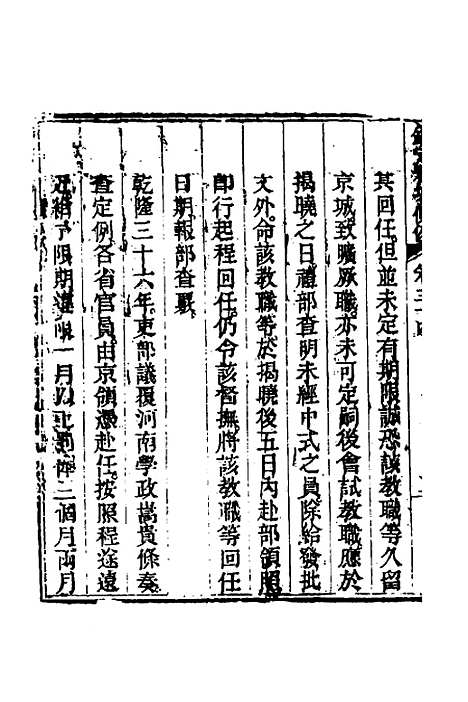 其回任但並未定有期限誠恐該教職等久留
京城致曠厥職亦未可定嗣後會試教職應於
揭曉之日禮部查明未經中式之員除給發批
文外命該教職等於揭曉後五日內赴部領照
即行起程回任仍令該督撫將該教職等回任
日期報部查覈
乾隆三十六年吏部議覆河南學政嵩貴條奏
查定例各省官員由京領憑赴任按照程途遠
近給予限期違限一月以上罰俸三個月兩月